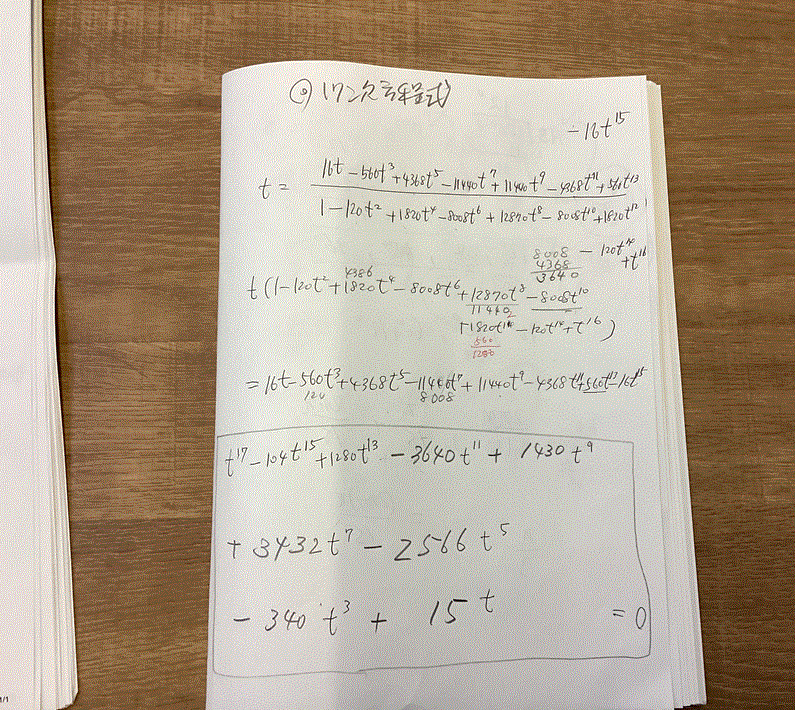 ⑨ 17次方程式
-16t^15
t = 16t - 560t^3 + 4368t^5 - 11440t^7 + 11440t^9 - 4368t^11 + 560t^13
1 - 120t^2 + 1820t^4 - 8008t^6 + 12870t^8 - 8008t^10 + 1820t^12
- 120t^14 + t^16
8008
4368
3640
4386
t(1 - 120t^2 + 1820t^4 - 8008t^6 + 12870t^8 - 8008t^10
11440
+1820t^12 - 120t^14 + t^16)
560
1280
= 16t - 560t^3 + 4368t^5 - 11440t^7 + 11440t^9 - 4368t^11 + 560t^13 - 16t^15
120
8008
t^17 - 104t^15 + 1280t^13 - 3640t^11 + 1430t^9
+ 3432t^7 - 2566t^5
- 340t^3 + 15t = 0
1/1